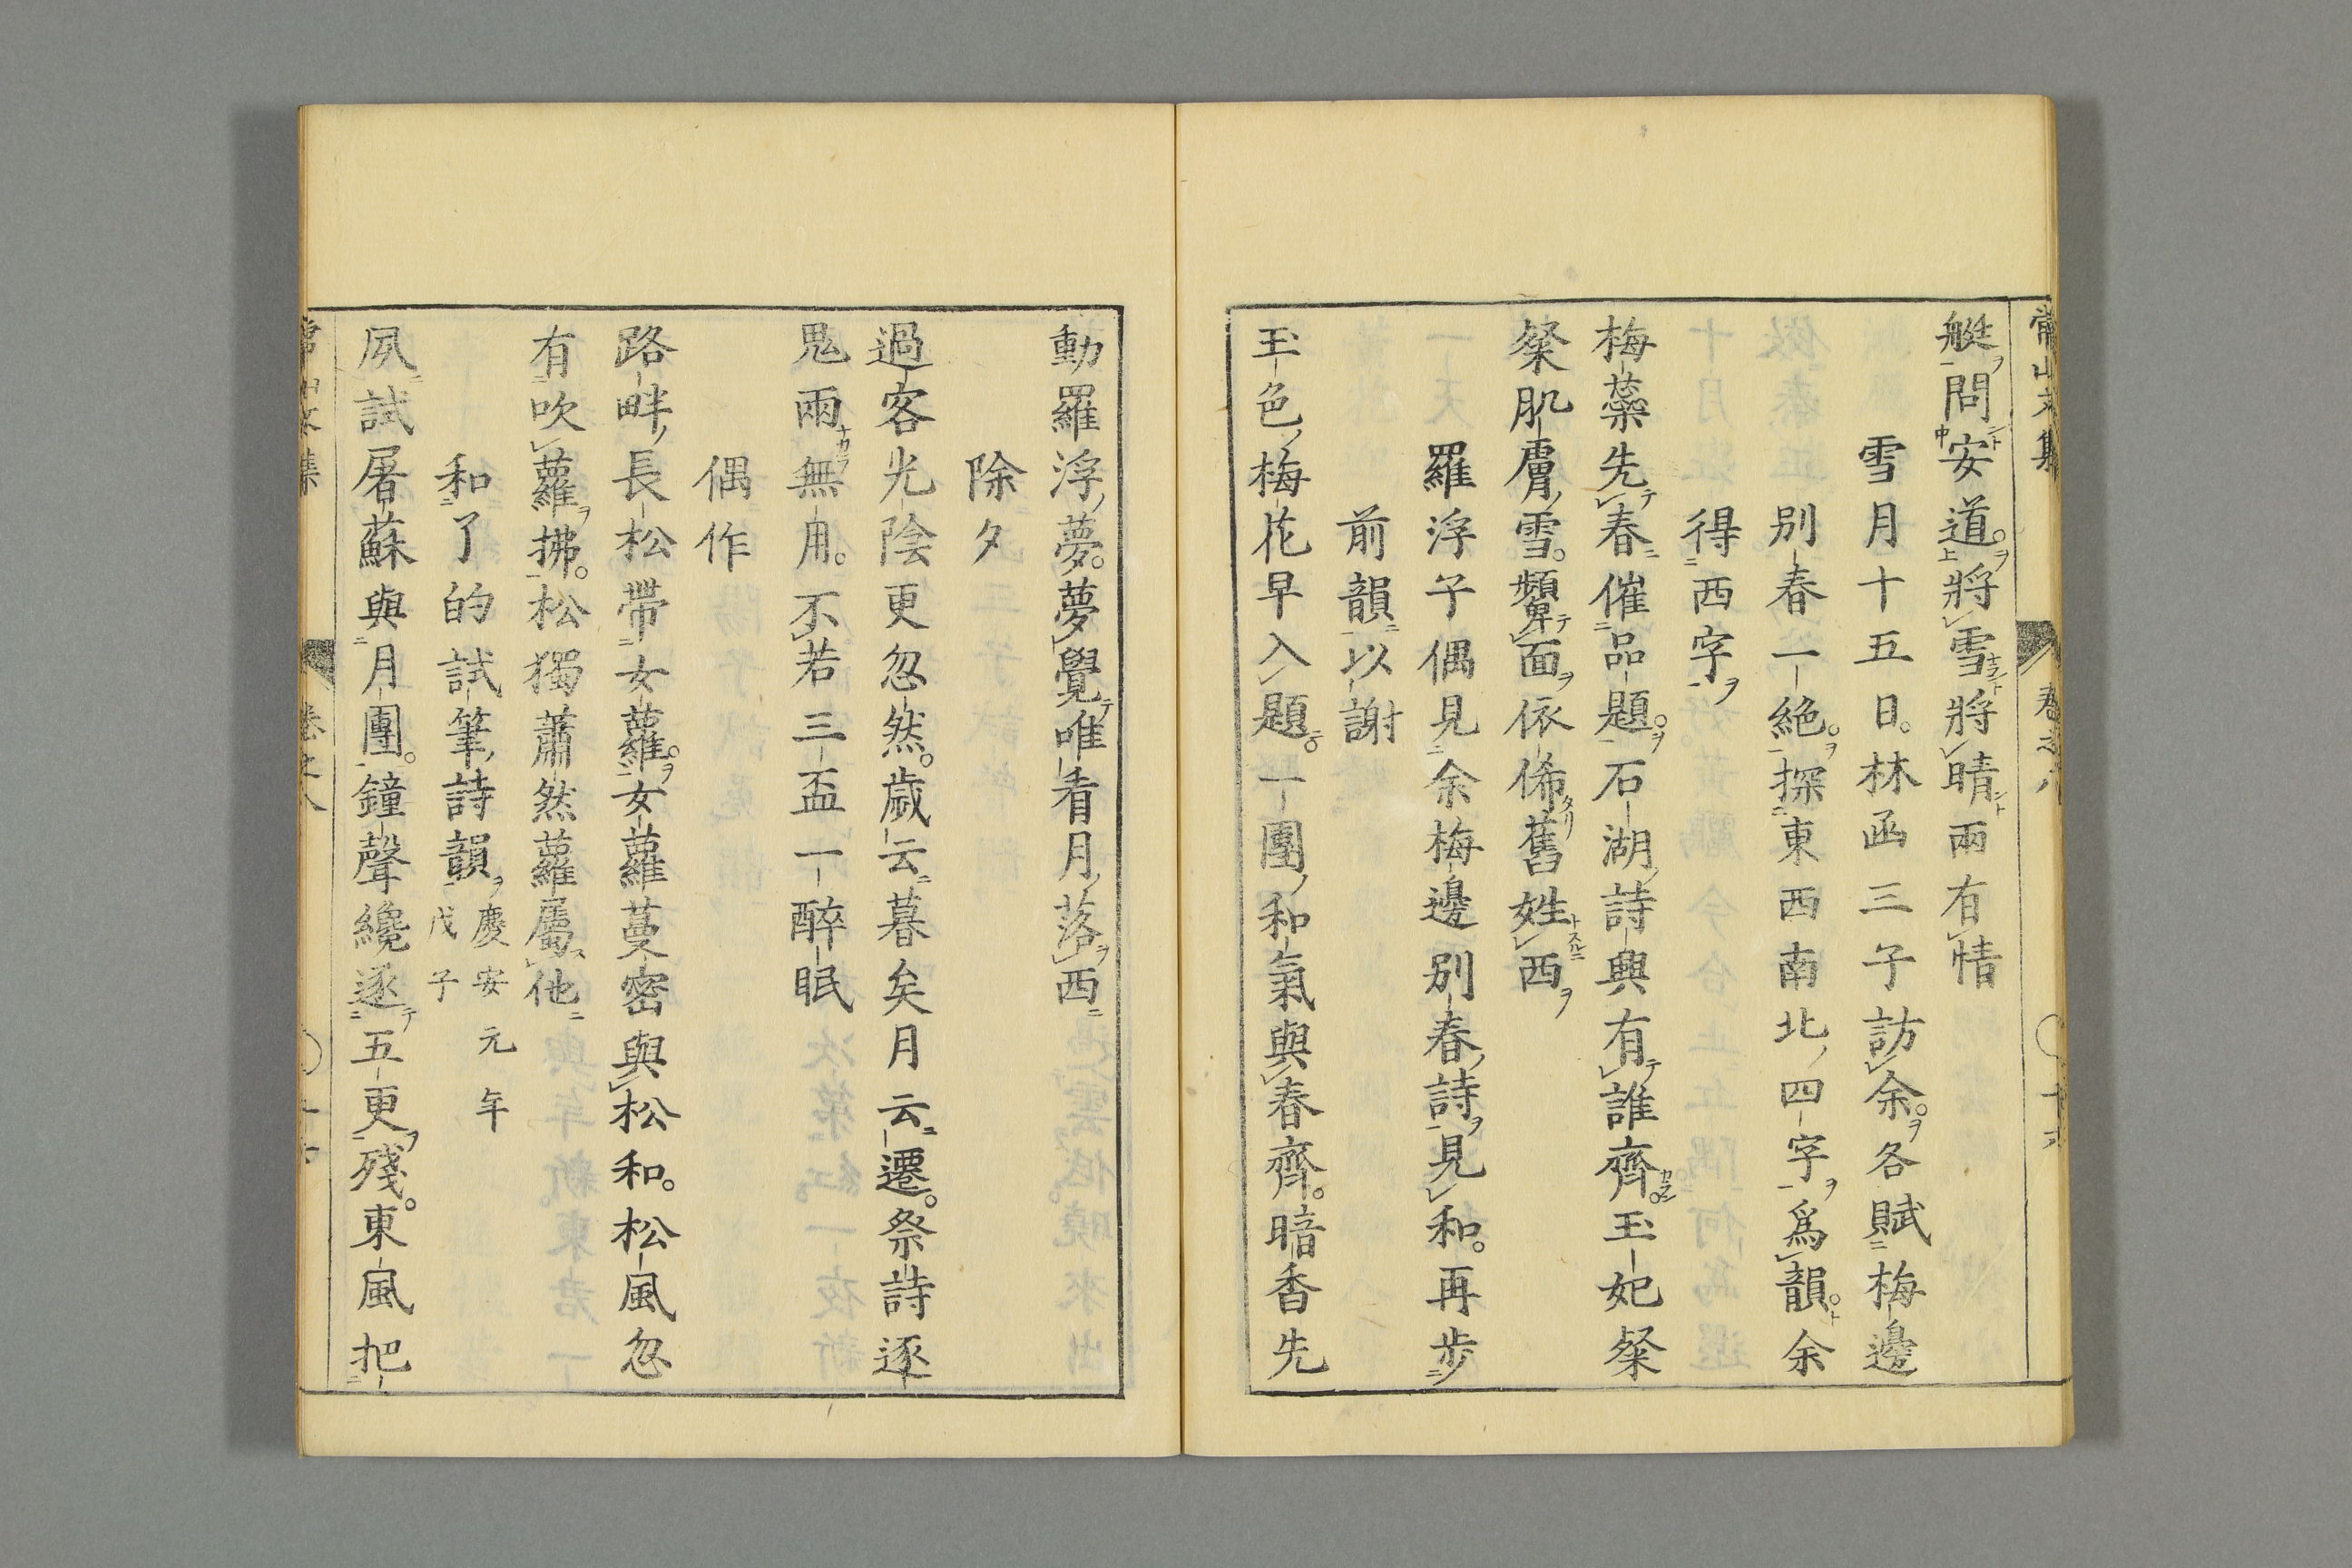 常山文集 卷之八
艇問安道。將雪將晴兩有情
雪月十五日。林函三子訪余。各賦梅邊
別春一絶。探東西南北四字爲韻。余
得西字
梅蘂先春催品題。石湖詩興有誰齊。玉妃粲
粲肌膚雪。頻卑面依俙舊姓西
羅浮子偶見余梅邊別春詩見和。再步
前韻以謝
玉色梅花早入題。一團和氣與春齊。暗香先
動羅浮夢。夢覺唯看月落西
除夕
過客光陰更忽然。歳云暮矣月云遷。祭詩逐
鬼兩無用。不若三盃一醉眠
偶作
路畔長松帶女蘿。女蘿蔓密與松和。松風忽
有吹蘿拂。松獨蕭然蘿屬他
和了的試筆詩韻 慶安元年戊子
夙試屠蘇與月團。鐘聲纔逐五更殘。東風把
常山文集 卷之八